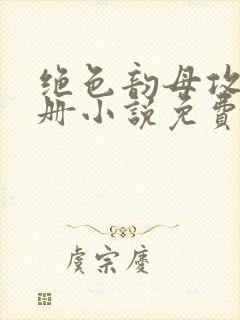 绝色韵母攻
册小说免费
虞宗慶